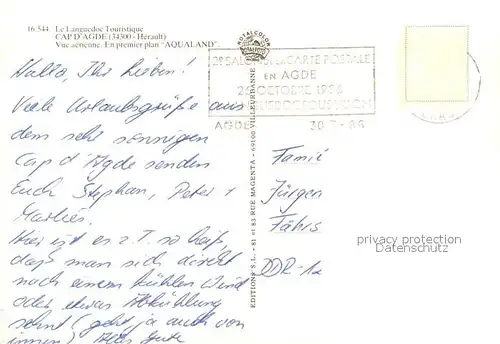 16.544. Le Languedoc Touristique
CAP D'AGDE (34300 - Hérault)
Vue aérienne. En premier plan "AQUALAND".
Hallo, Ihr Lieben!
Viele Urlaubsgrüße aus
dem sehr sonnigen
Cap d'Agde senden
Euch Stephan, Peter +
Marlies.
Hier ist es z.T. so heiß,
daß man sich direkt
nach einem kühlen Wind
oder etwas Abkühlung
sehnt (geht ja auch von
innen) Alles Gute
ROYALCOLOR
EDITIONS S.L. - 81 et 83 RUE MAGENTA - 69100 VILLEURBANNE
2e SALON DE LA CARTE POSTALE
EN AGDE
26 OCTOBRE 1986
LANGUEDOC ROUSSILLON
AGDE
Jürgen
DDR-
privacy protection
Datenschutz